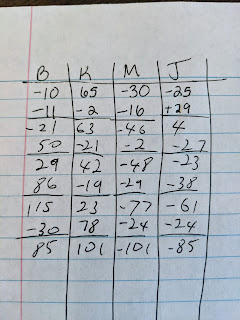 B K M J
-10 65 -30 -25
-11 -2 -16 +29
-21 63 -46 4
50 -21 -2 -27
29 42 -48 -23
86 -19 -29 -38
115 23 -77 -61
-30 78 -24 -24
85 101 -101 -85